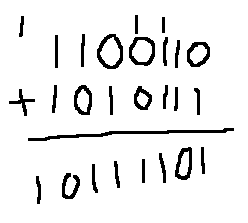 1 1 1
1100110
+ 1010111
10111101